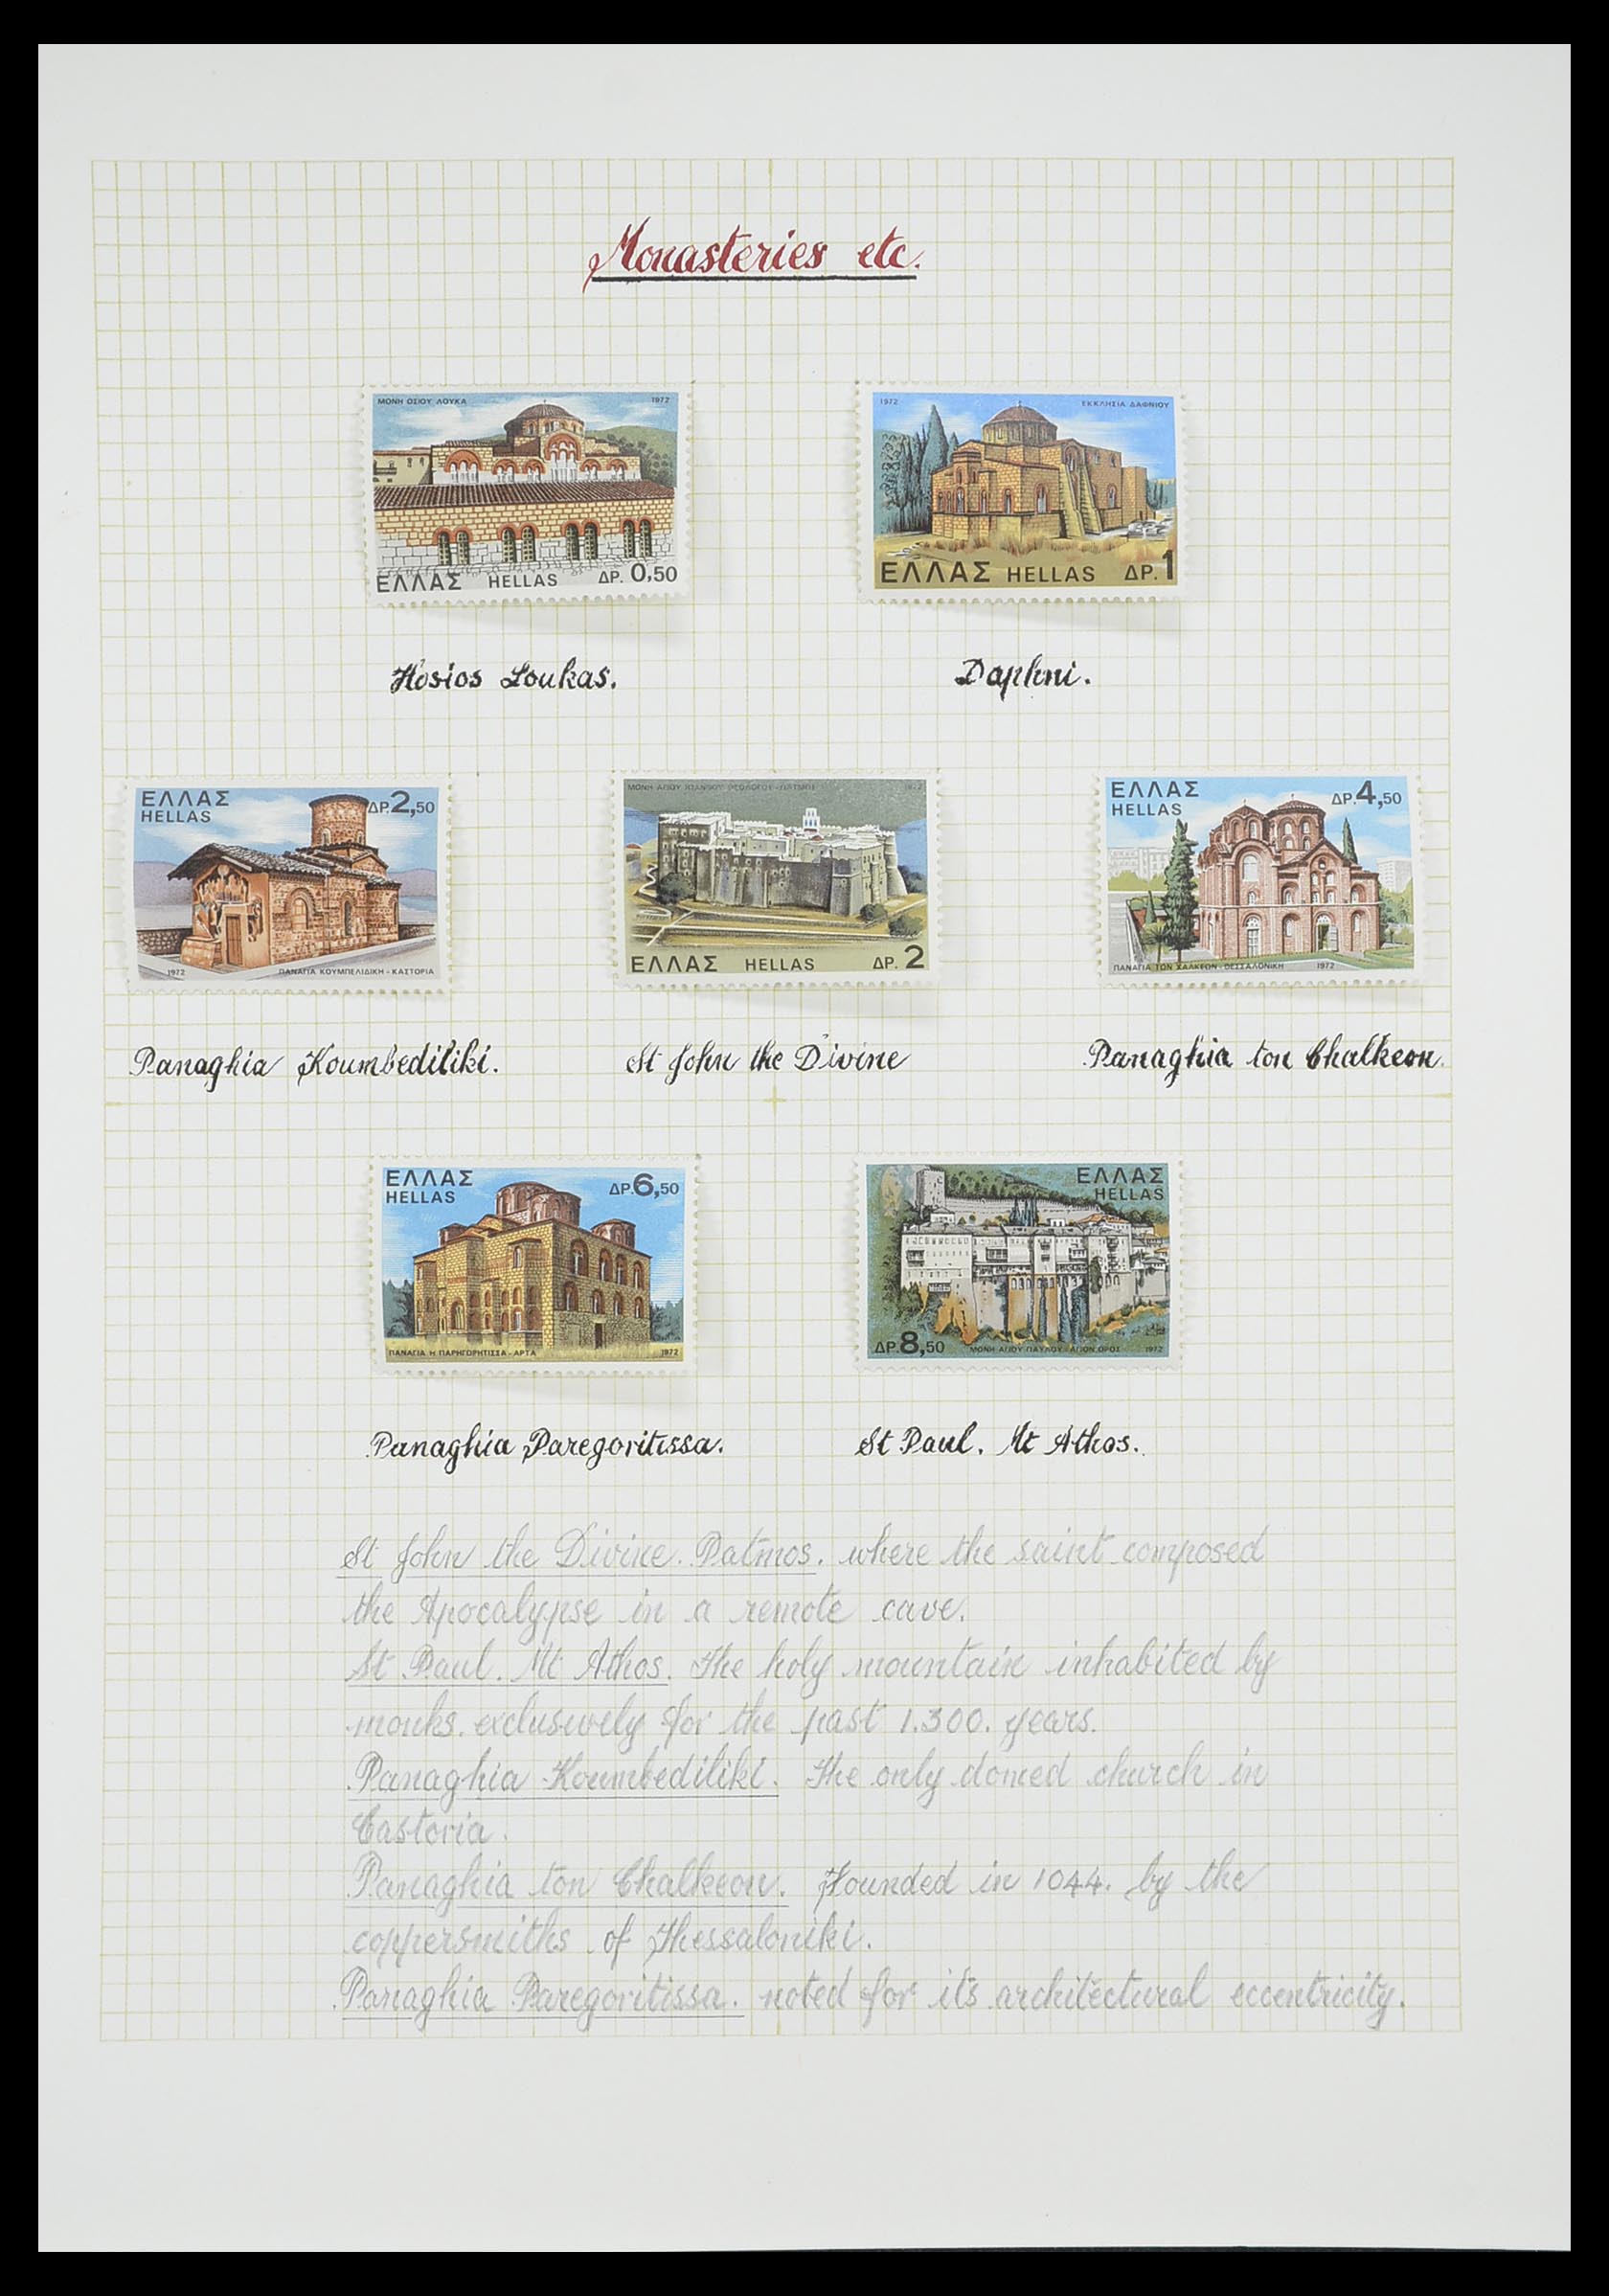 Monasteries etc.
ΜΟΝΗ ΟΣΙΟΥ ΛΟΥΚΑ 1972
ΕΛΛΑΣ HELLAS ΔΡ. 0,50
1972 ΕΚΚΛΗΣΙΑ ΔΑΦΝΙΟΥ
ΕΛΛΑΣ HELLAS ΔΡ. 1
Hosios Loukas.
Daphni.
ΕΛΛΑΣ ΔΡ. 2,50
HELLAS
1972 ΠΑΝΑΓΙΑ ΚΟΥΜΠΕΛΙΔΙΚΗ - ΚΑΣΤΟΡΙΑ
ΜΟΝΗ ΑΓΙΟΥ ΙΩΑΝΝΟΥ ΘΕΟΛΟΓΟΥ - ΠΑΤΜΟΣ 1972
ΕΛΛΑΣ HELLAS ΔΡ. 2
ΕΛΛΑΣ ΔΡ. 4,50
HELLAS
ΠΑΝΑΓΙΑ ΤΩΝ ΧΑΛΚΕΩΝ - ΘΕΣΣΑΛΟΝΙΚΗ 1972
Panaghia Koumbediliki.
St John the Divine
Panaghia ton Chalkeon.
ΕΛΛΑΣ ΔΡ. 6,50
HELLAS
ΠΑΝΑΓΙΑ Η ΠΑΡΗΓΟΡΗΤΙΣΣΑ - ΑΡΤΑ 1972
ΕΛΛΑΣ
HELLAS
ΔΡ. 8,50 ΜΟΝΗ ΑΓΙΟΥ ΠΑΥΛΟΥ - ΑΓΙΟΝ ΟΡΟΣ 1972
Panaghia Paregoritissa.
St Paul. Mt Athos.
St John the Divine. Patmos. where the saint composed
the Apocalypse in a remote cave.
St Paul. Mt Athos. The holy mountain inhabited by
monks. exclusively for the past 1.300. years.
Panaghia Koumbediliki. The only domed church in
Castoria.
Panaghia ton Chalkeon. Founded in 1044. by the
coppersmiths of Thessaloniki.
Panaghia Paregoritissa. noted for it's architectural eccentricity.